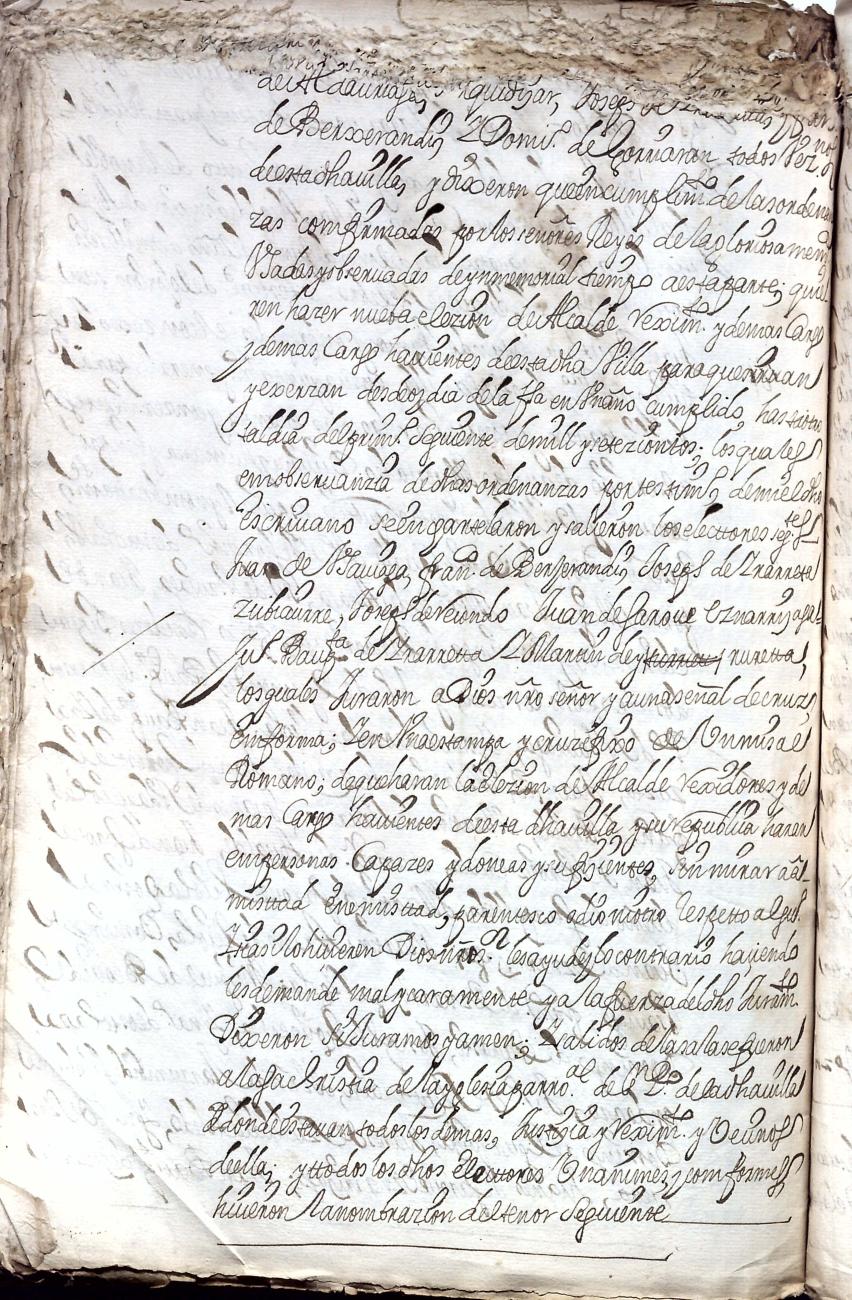 de Berxerandi, y Domi.º de Gorriaran todos Vez.ºs
de esta dha villa, y dixeron que en cumplim.to de las ordenan
zas comfirmadas por los señores Reyes de la gloriosa mem.ª
Vsadas y obseruadas de ynmemorial tiempo a esta parte; quie
ren hazer nueba elezion de Alcalde Rexim.to y demas Cargo
y demas Cargo hauientes de esta dha Villa para que
y exerzan desde oy dia de la fha en Vn año cumplido, hasta otro
tal dia del prim.º siguiente de mill y setezientos; los quales
en obseruanzia de dhas ordenanzas por testim.º de mi el dho
Escriuano se encantelaron y salieron los electtores sig.tes
Juan de fran.co de Berxerandi, Joseph de Yrarreta
zubiaurre, Joseph de Juan de Garoue
Ju.º Baup.ta de Yrarretta y Martin de yturretta,
los quales Juraron a Dios nro señor y a una señal de cruz,
en forma; y en Vna estampa y cruzifixo de Vn missal
Romano; de que haran la elezion de Alcalde rexidores y de
mas Cargo hauientes de esta dha villa y su republica haran
en personas Capazes ydoneas y sufizientes, sin mirar a a
misttad enemisttad, parentesco odio ni otro respetto alg.º
y si assi lo hizieren Dios nro s.r les ayude y lo contrario haziendo
les demande mal y caramente y a la fuerza del dho Juram.to
Dixeron Si Juramos y amen; y salidos de la sala se fueron
a la sachristia de la yglesia parro.al de de la dha villa
a donde estauan todos los demas, Justizia y Rexim.to y Vezinos
de ella; y ttodos los dhos Electtores Vnanimes y comformes
hizieron la nombrazion del tenor siguiente